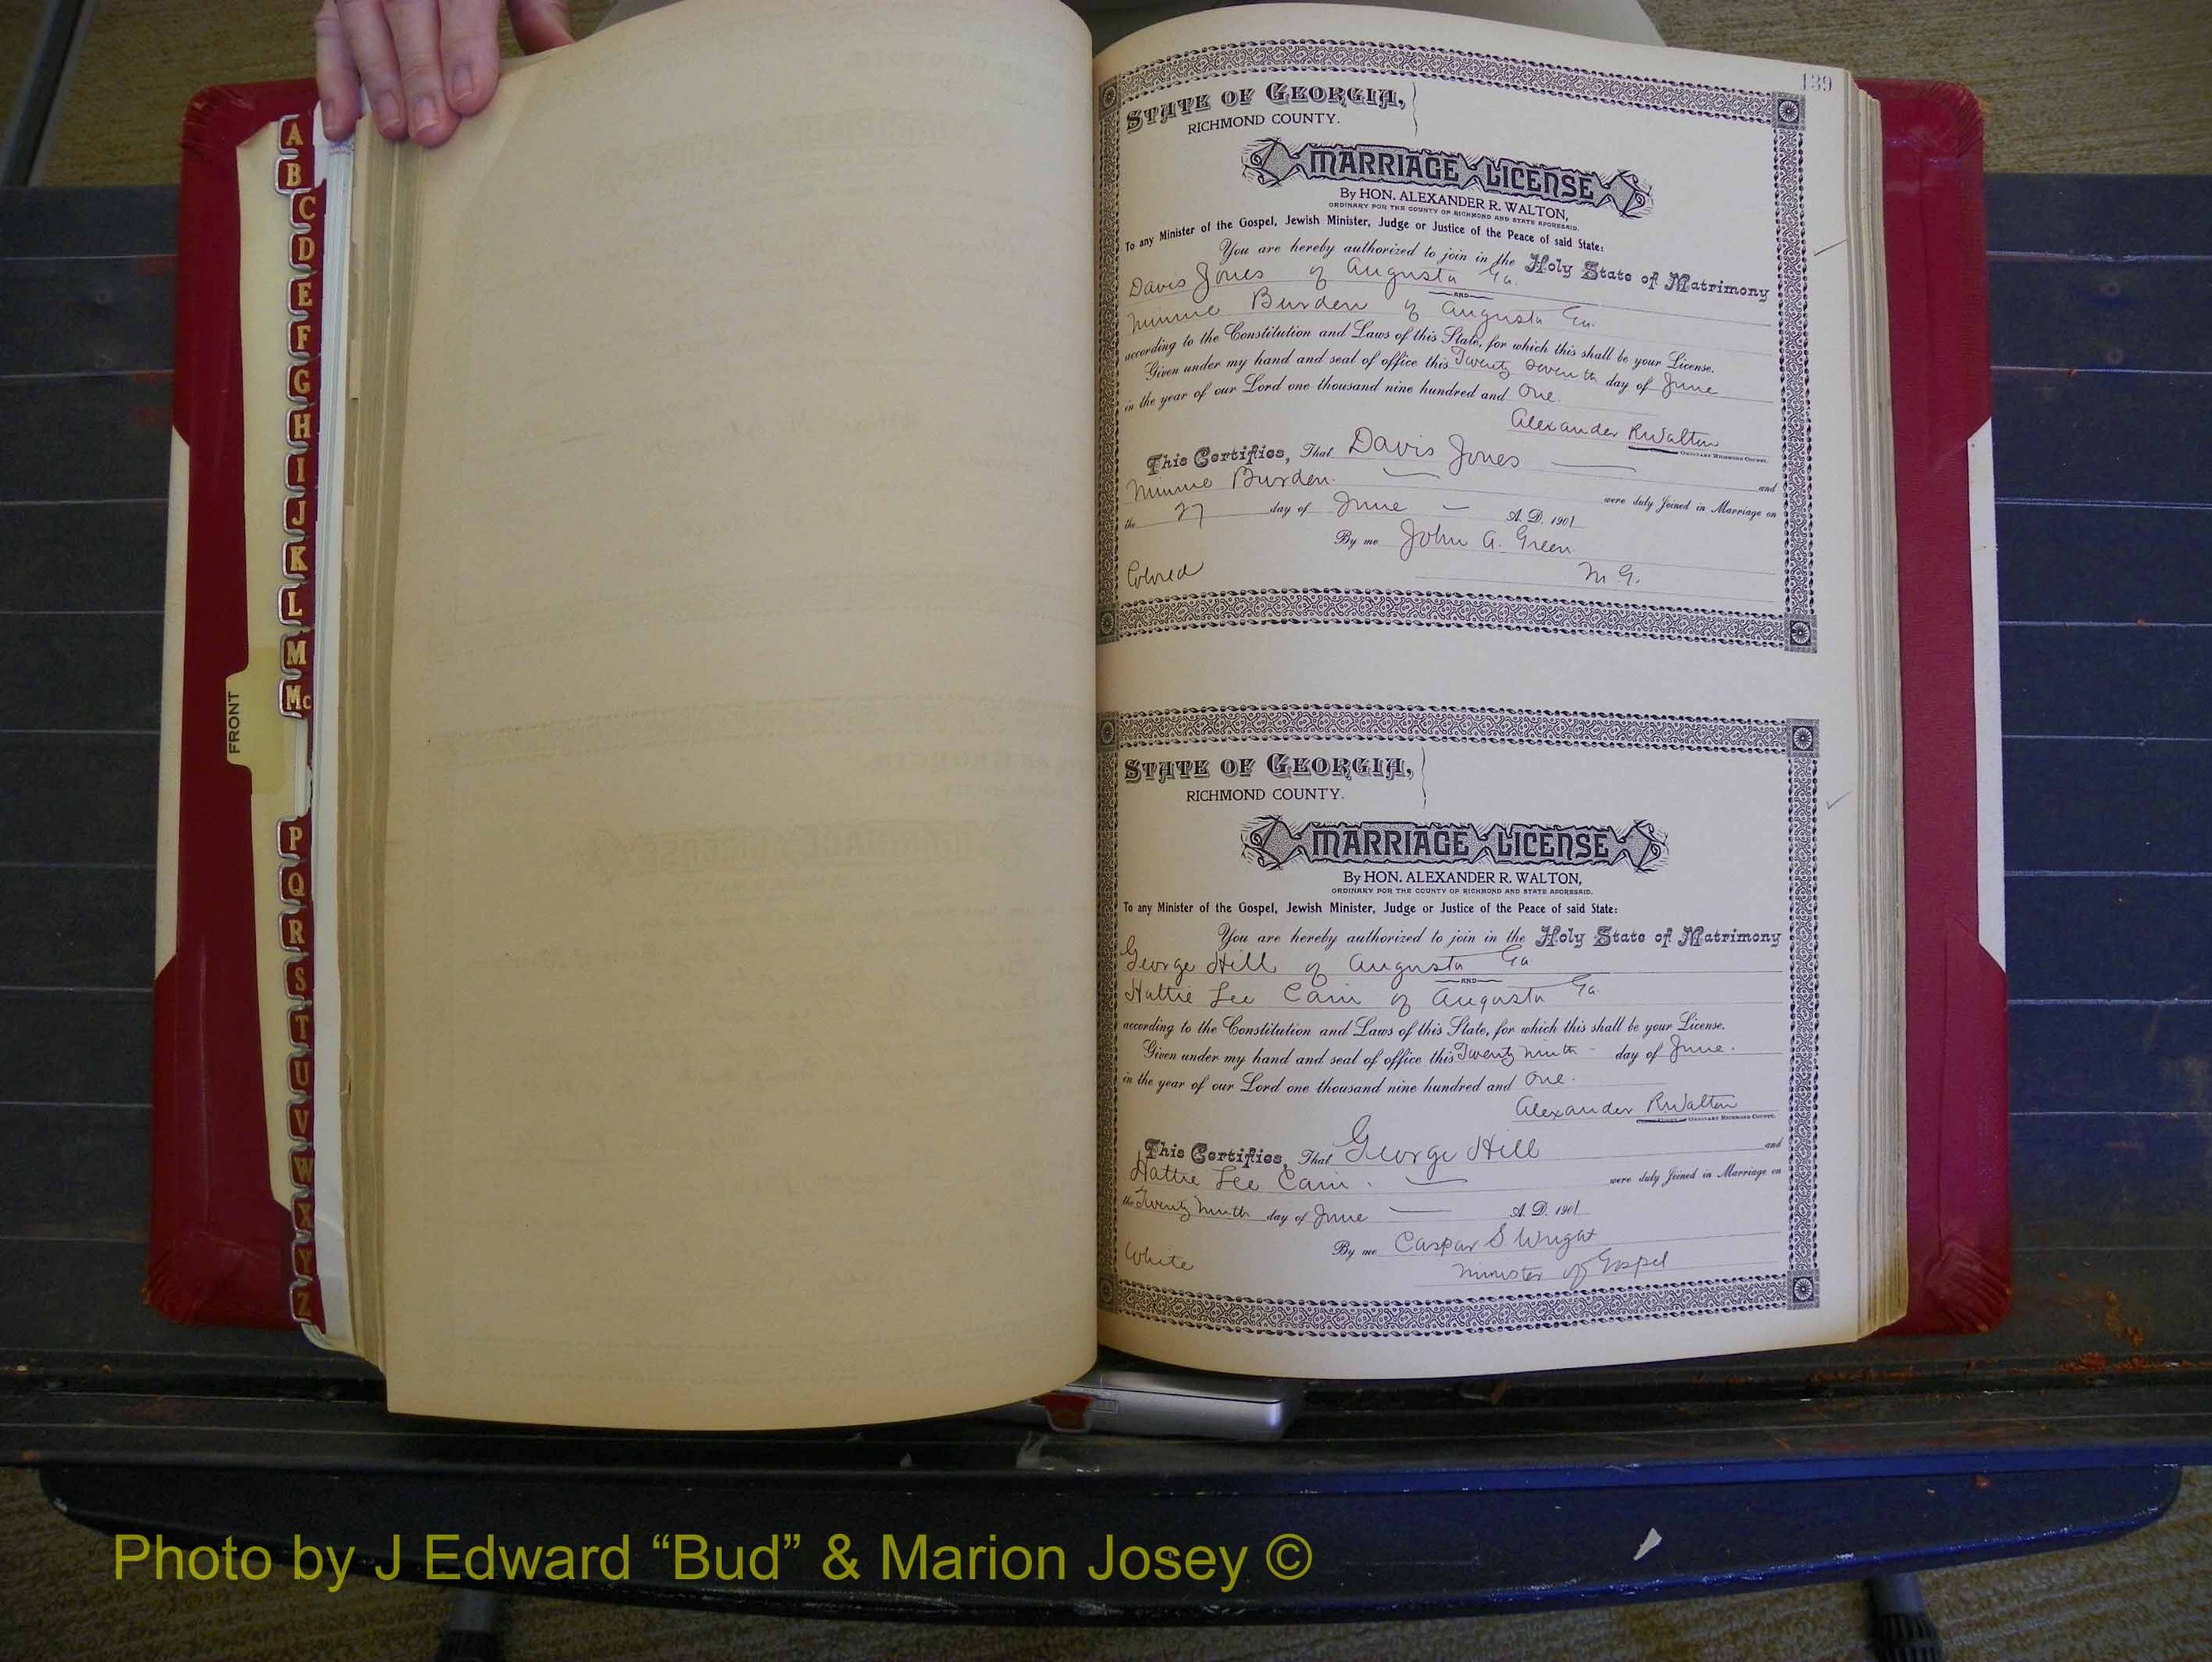 A
B
C
D
E
F
G
H
I
J
K
L
M
Mc
P
Q
R
S
T
U
V
W
X
Y
Z
FRONT
139
STATE OF GEORGIA,
RICHMOND COUNTY.
MARRIAGE LICENSE
By HON. ALEXANDER R. WALTON,
ORDINARY FOR THE COUNTY OF RICHMOND AND STATE AFORESAID.
To any Minister of the Gospel, Jewish Minister, Judge or Justice of the Peace of said State:
You are hereby authorized to join in the Holy State of Matrimony
Davis Jones of Augusta Ga.
AND
Minnie Burden of Augusta Ga.
according to the Constitution and Laws of this State, for which this shall be your License.
Given under my hand and seal of office this Twenty Seventh day of June
in the year of our Lord one thousand nine hundred and One.
Alexander R Walton
ORDINARY RICHMOND COUNTY.
This Certifies, That Davis Jones and
Minnie Burden. were duly Joined in Marriage on
the 27 day of June A. D. 1901
By me John A. Green
Colored M G.
STATE OF GEORGIA,
RICHMOND COUNTY.
MARRIAGE LICENSE
By HON. ALEXANDER R. WALTON,
ORDINARY FOR THE COUNTY OF RICHMOND AND STATE AFORESAID.
To any Minister of the Gospel, Jewish Minister, Judge or Justice of the Peace of said State:
You are hereby authorized to join in the Holy State of Matrimony
George Hill of Augusta Ga
AND
Hattie Lee Cain of Augusta Ga.
according to the Constitution and Laws of this State, for which this shall be your License.
Given under my hand and seal of office this Twenty ninth day of June.
in the year of our Lord one thousand nine hundred and One.
Alexander R Walton
ORDINARY RICHMOND COUNTY.
This Certifies, That George Hill and
Hattie Lee Cain. were duly Joined in Marriage on
the Twenty ninth day of June A. D. 1901
By me Caspar S Wright
White Minister of Gospel
Photo by J Edward “Bud” & Marion Josey ©